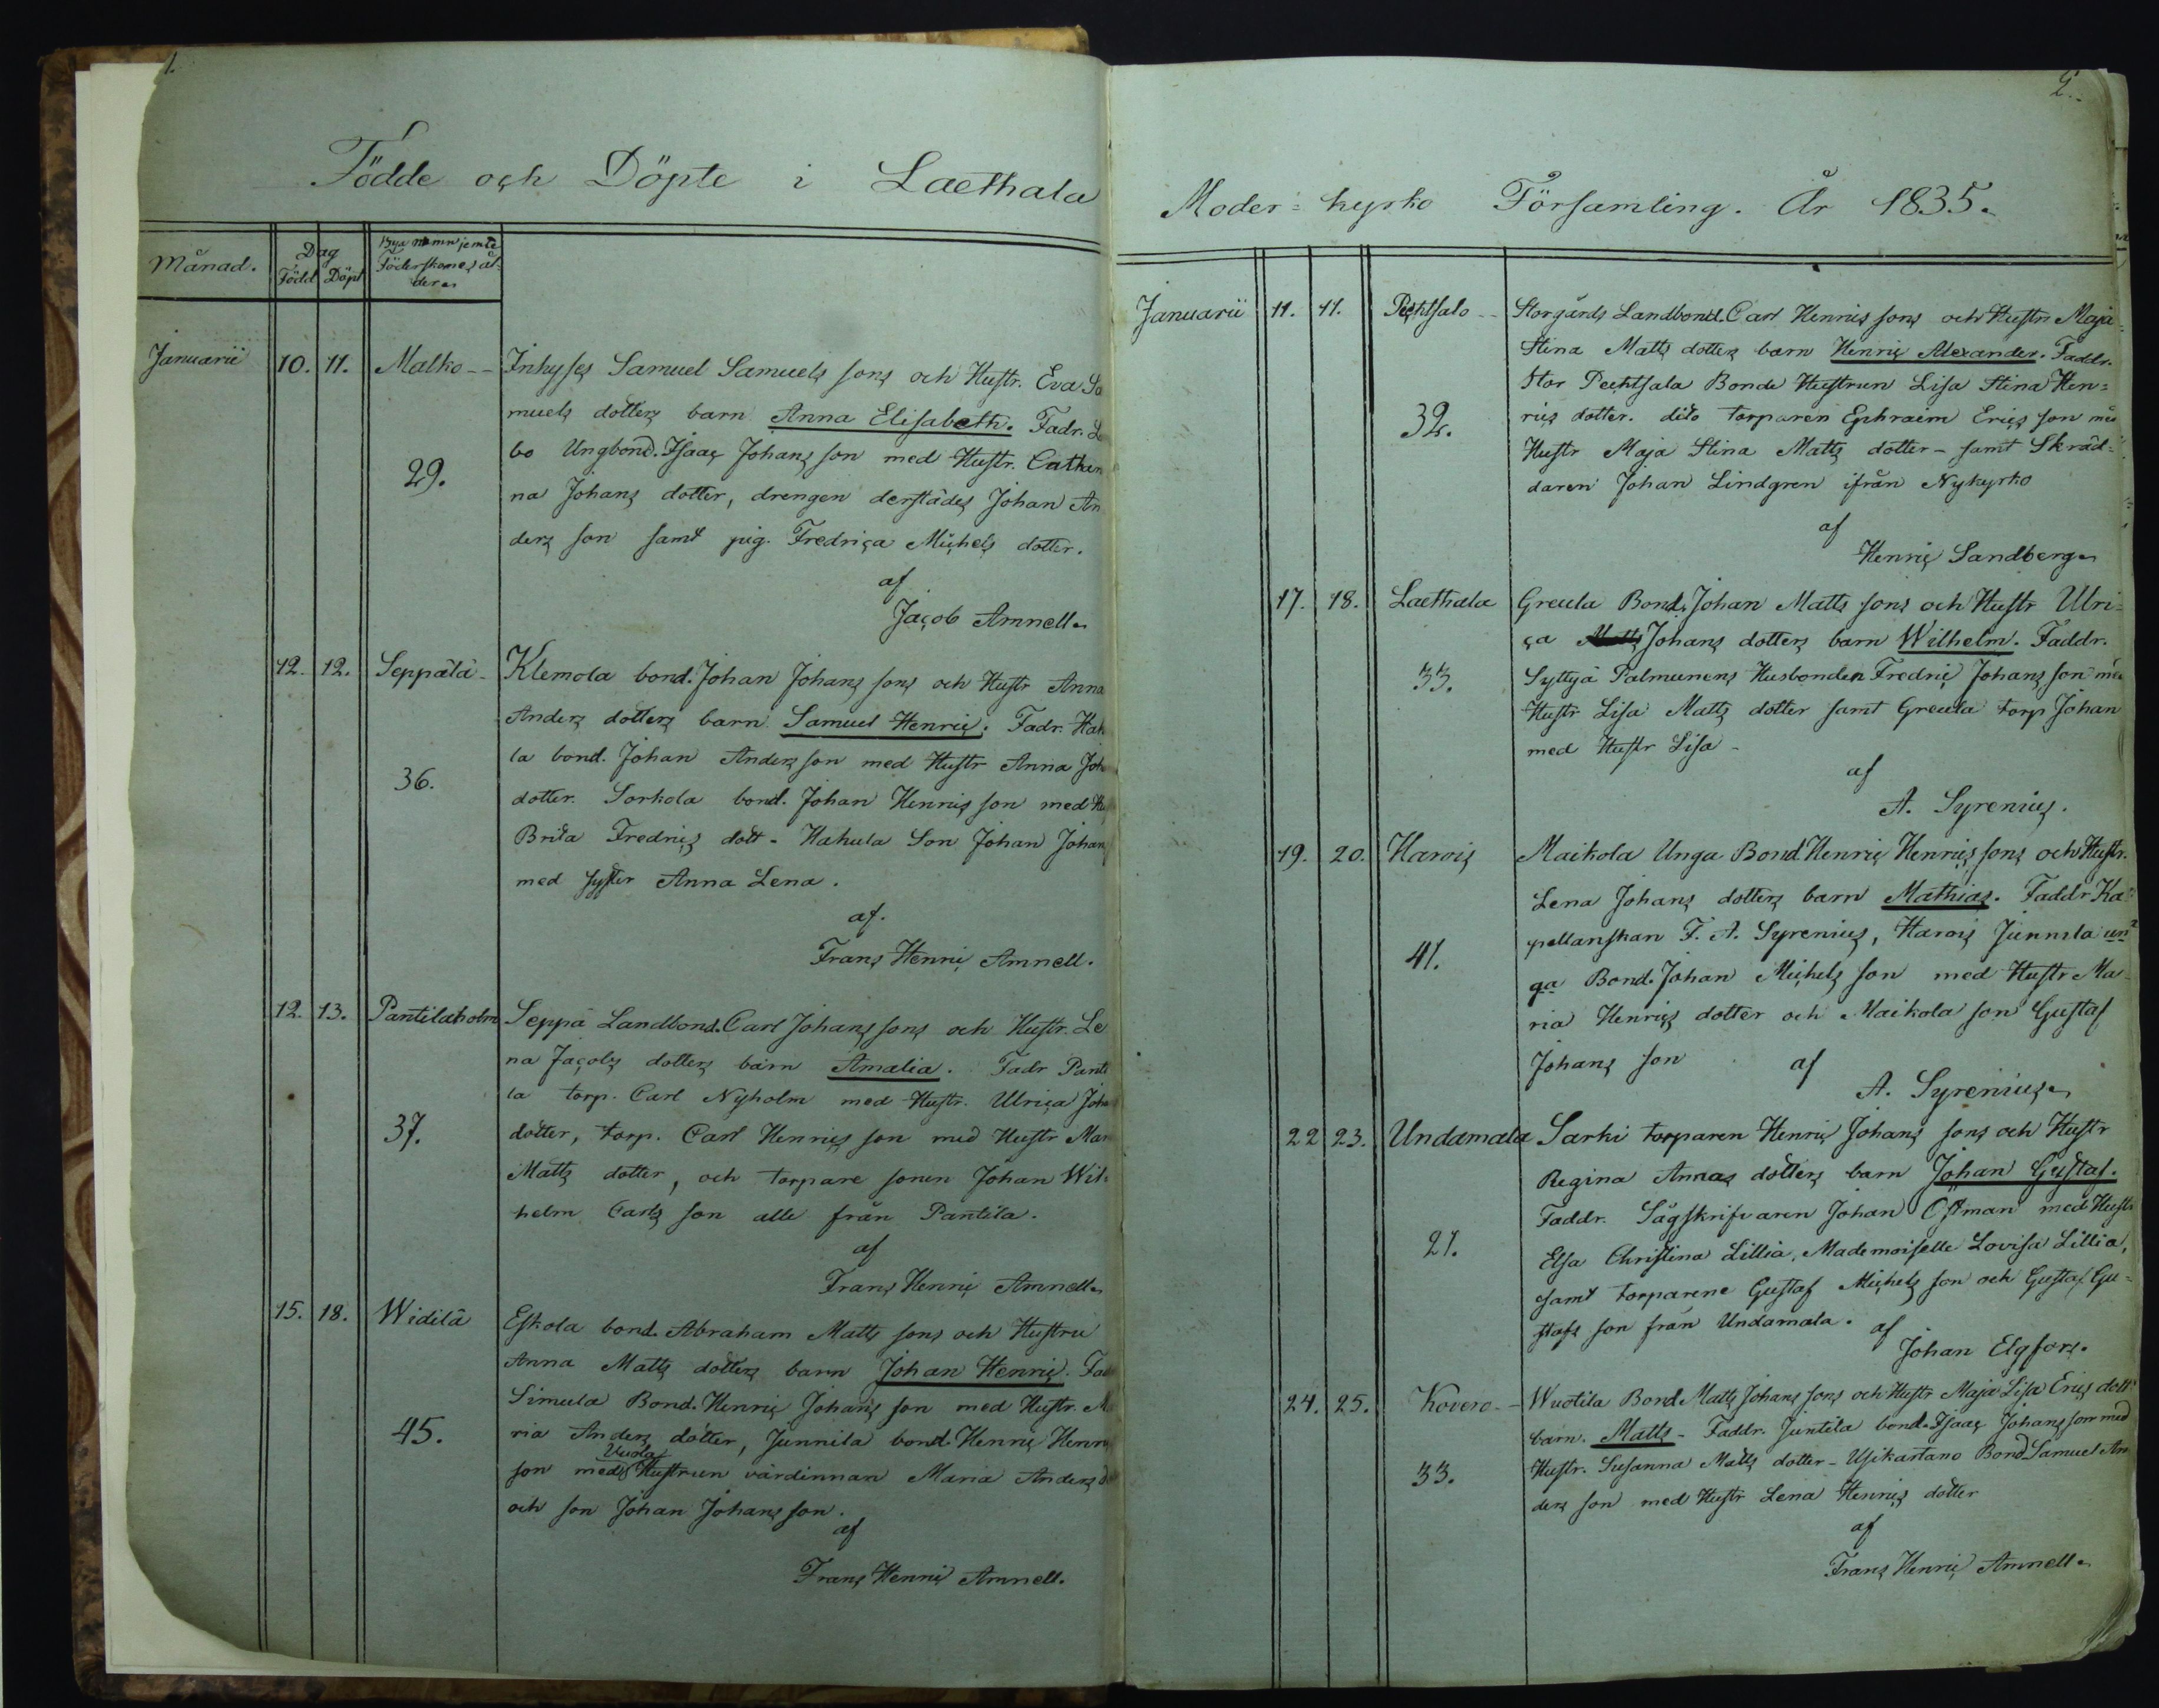 1.
Födde och Döpte i Laethala
Månad.
Dag
Född Döpt
Bya namn jemte
Föderskones ål-
der.
Januarii 10. 11. Malko -- Inhyses Samuel Samuels sons och Hustr. Eva Sa
muels dotters barn Anna Elisabeth. Fadr.
29.
bo Ungbond. Isaac Johans son med Hustr. Cathari
na Johans dotter, drengen derstädes Johan An
ders son samt pig. Fredrica Michels dotter.
af
Jacob Amnell.
12. 12. Seppälä - Klemola bond. Johan Johans sons och Hustr Anna
Anders dotters barn Samuel Henric. Fadr. Hak
36.
la bond. Johan Anders son med Hustr Anna Joh
dotter. Sorkola bond. Johan Henrics son med
Brita Fredrics dott - Hakula Son Johan Johans
med syster Anna Lena.
af.
Frans Henric Amnell.
12. 13. Pantilaholm Seppä Landbond. Carl Johans sons och Hustr. Le
na Jacobs dotters barn Amalia. Fadr Panti
la torp. Carl Nyholm med Hustr. Ulrica Joha
37.
dotter, torp. Carl Henrics son med Hustr Mar
Matts dotter, och torpare sonen Johan Wil-
helm Carls son alle från Pantila.
af
Frans Henric Amnell.
15. 18. Widilä Eskola bond. Abraham Matts sons och Hustru
Anna Matts dotters barn Johan Henric. Fad
Simula Bond. Henric Johans son med Hustr. Ma
45.
ria Anders dotter, Junnila bond. Henric Henrics
Vuola
son med Hustrun värdinnan Maria Anders d
och son Johan Johans son.
af
Frans Henric Amnell.
2.
Moder-kyrko Församling. År 1835.
Januarii 11. 11. Pechtsalo -- Storgårds Landbond. Carl Henrics sons och Hustr Maja
Stina Matts dotters barn Henric Alexander. Faddr.
Stor Pechtsala Bonde Hustrun Lisa Stina Hen-
32.
rics dotter. dito torparen Ephraim Erics son med
Hustr Maja Stina Matts dotter - samt Skräd-
daren Johan Lindgren ifrån Nykyrko
af
Henric Sandberg.
17. 18. Laethala Greula Bond. Johan Matts sons och Hustr Ulri-
ca Johans dotters barn Wilhelm. Faddr.
33.
Syttyä Palmunens Husbonden Fredric Johans son med
Hustr Lisa Matts dotter samt Greula torp Johan
med Hustr Lisa -
af
A. Syrenius.
19. 20. Harois Maikola Unga Bond. Henric Henrics sons och Hustr.
Lena Johans dotters barn Mathias. Faddr Ka-
41.
pellanskan F. A. Syrenius, Harois Junnila un-
ga Bond. Johan Michels son med Hustr Ma-
ria Henrics dotter och Maikola son Gustaf
Johans son
af
A. Syrenius.
22 23. Undamala Sarki torparen Henric Johans sons och Hustr
Regina Annas dotters barn Johan Gustaf.
Faddr. Sågskrifvaren Johan Östman med Hustr
21.
Elsa Christina Lillia, Mademoiselle Lovisa Lillia,
samt torparene Gustaf Michels son och Gustaf Gu-
stafs son från Undamala.
af
Johan Elgfors.
24. 25. Kovero -- Wuotila Bond. Matts Johans sons och Hustr Maja Lisa Erics dott.
barn. Matts - Faddr. Juntila bond. Isaac Johans son med
33.
Hustr. Susanna Matts dotter - Usikartano Bond Samuel An
ders son med Hustr Lena Henrics dotter
af
Frans Henric Amnell.